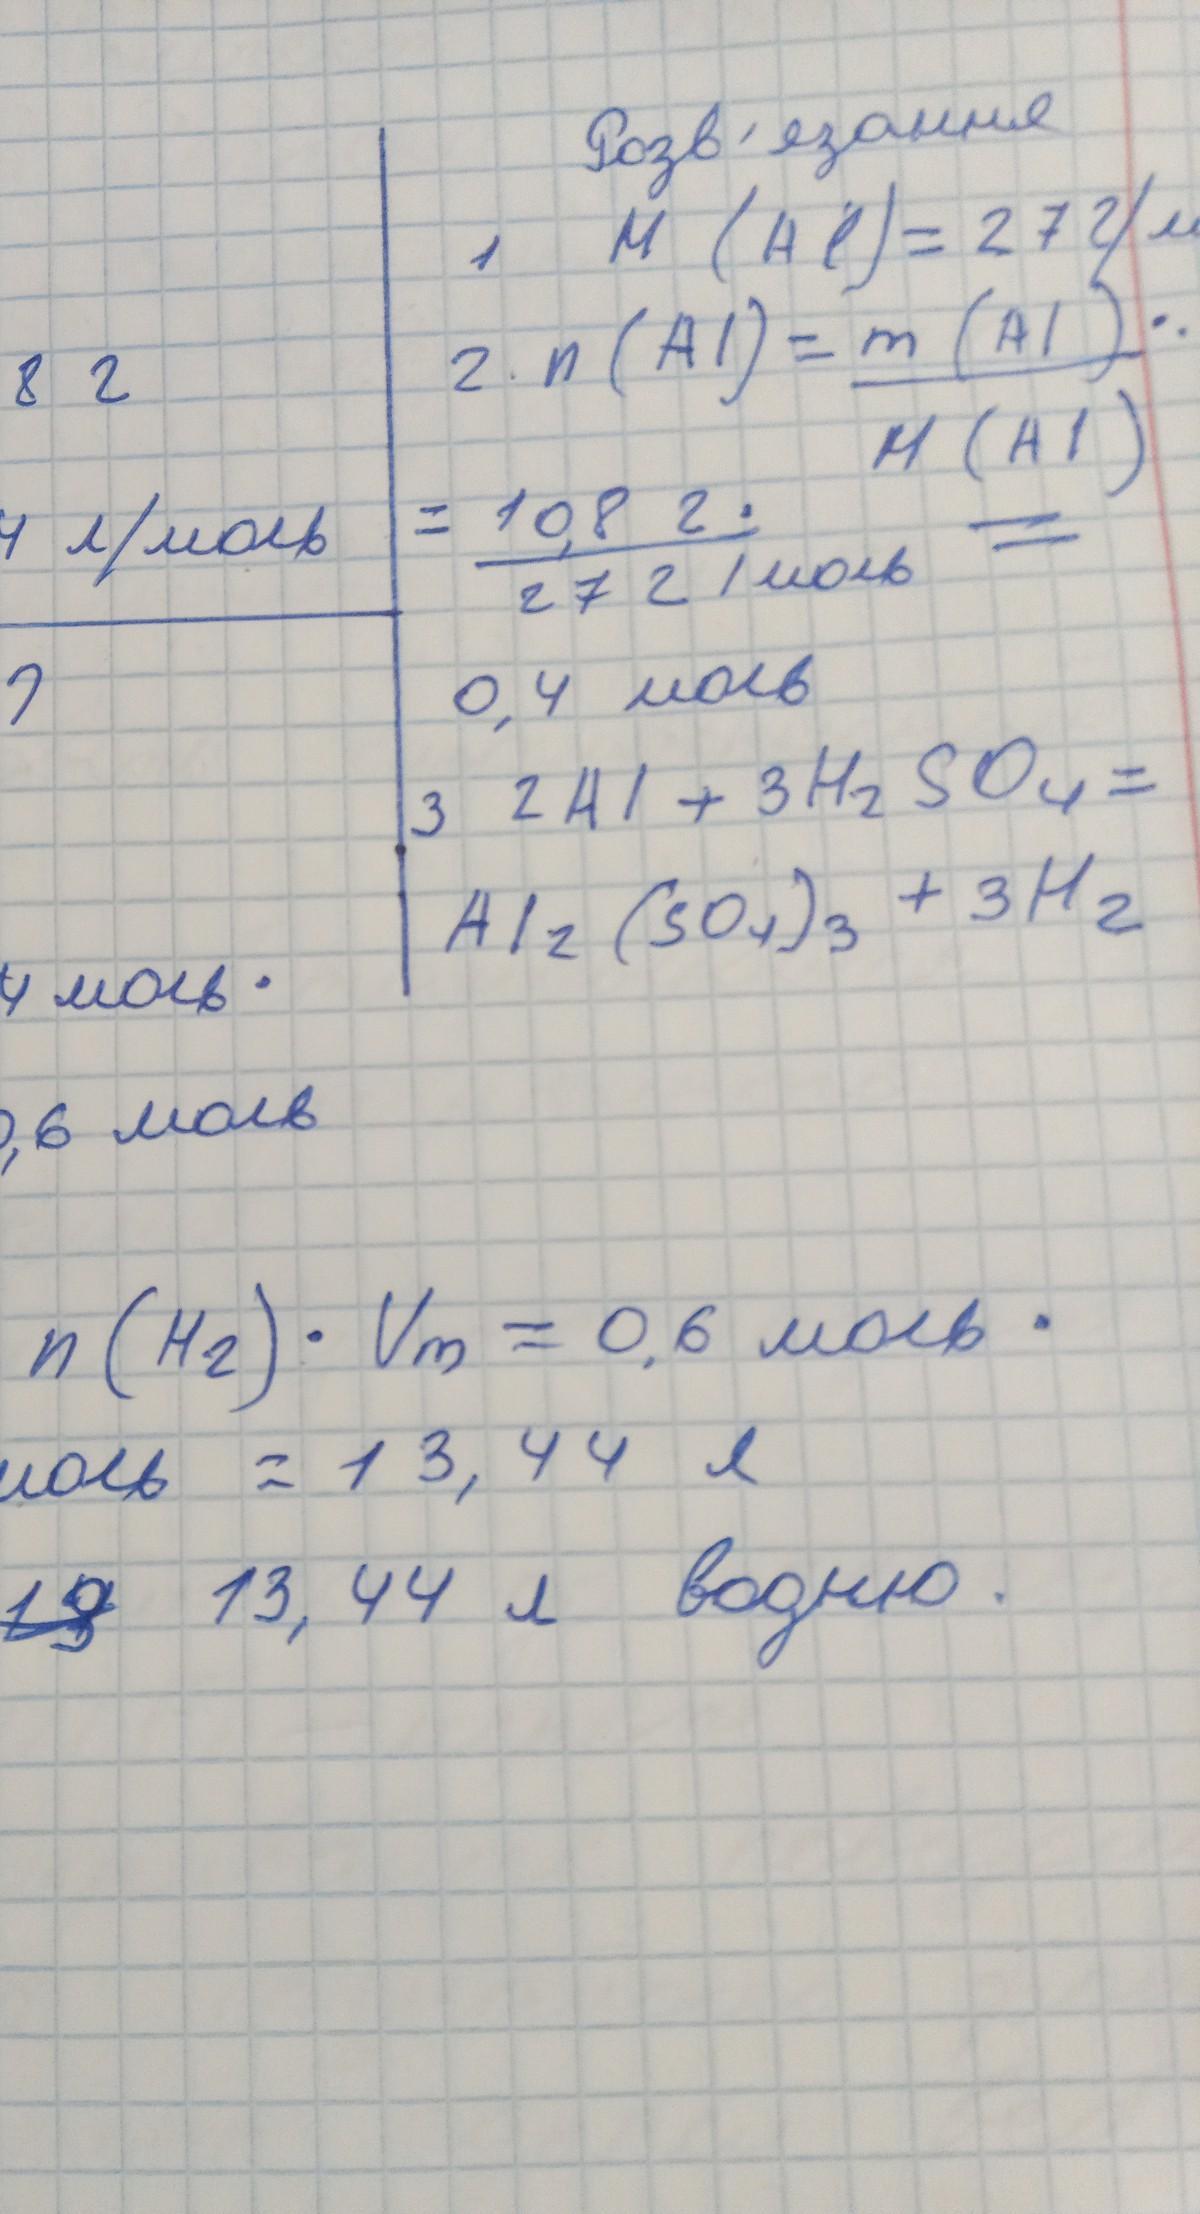 Розв'язання
1 M (Al) = 27 г/м
8 г
2. n (Al) = m (Al) :
M (Al)
4 л/моль
= 10,8 г :
27 г/моль =
?
0,4 моль
3 2Al + 3H₂SO₄ =
Al₂(SO₄)₃ + 3H₂
4 моль ·
0,6 моль
n(H₂) · Vm = 0,6 моль ·
моль = 13,44 л
13,44 л водню.